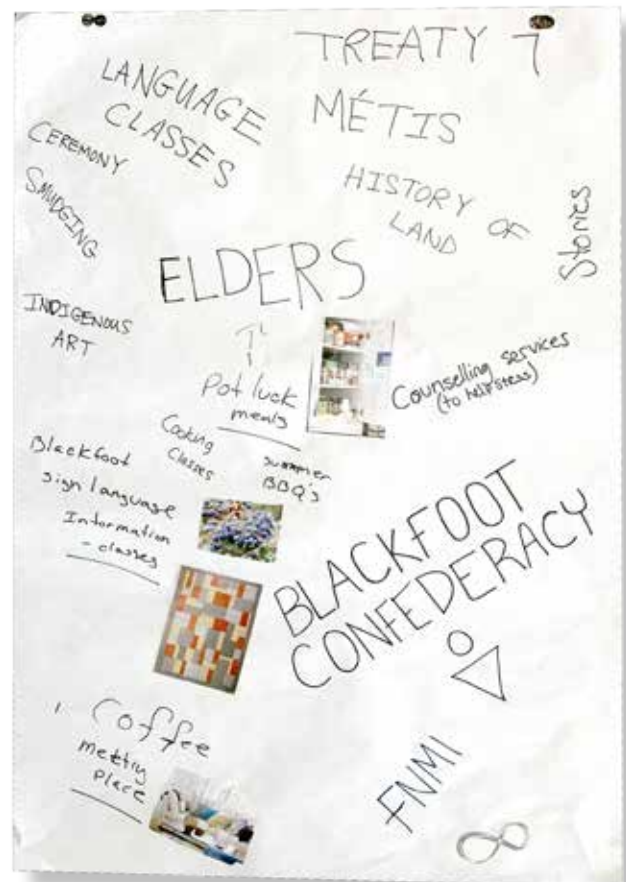 TREATY 7
LANGUAGE
CLASSES
MÉTIS
CEREMONY
SMUDGING
HISTORY OF
LAND
Stories
ELDERS
INDIGENOUS
ART
Pot luck
meals
Counselling services
(to help stress)
Cooking
Classes
summer
BBQ's
Blackfoot
sign language
Information
- classes
BLACKFOOT
CONFEDERACY
Coffee
meeting
place
FNMI